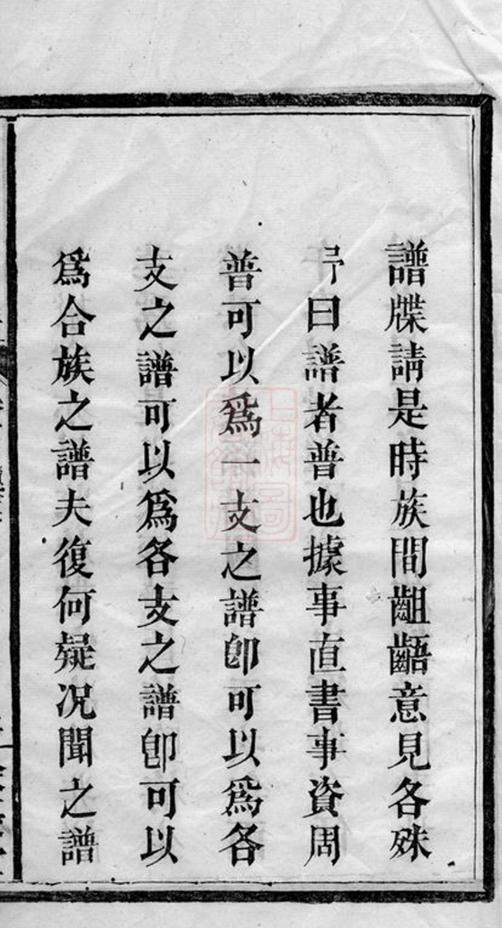 譜牒請是時族間齟齬意見各殊
予曰譜者普也據事直書事資周
普可以爲一支之譜卽可以爲各
支之譜可以爲各支之譜卽可以
爲合族之譜夫復何疑况聞之譜